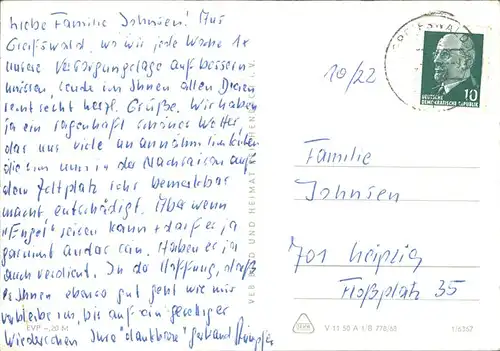 Liebe Familie Johnsen! Aus
Greifswald, wo wir jede Woche 1x
unsere Versorgungslage aufbessern
müssen, sende ich Ihnen allen Dreien
recht herzl. Grüße. Wir haben
ja ein sagenhaft schönes Wetter
das uns viele an annehmlichkeiten
die sim uns in der Nachsaison auf
dem Zeltplatz sehr bemerkbar
macht entschädigt. Aber wenn
"Engel" reisen kann + darf er ja
garnicht anders sein. Haben er ja
auch verdient. In der Hoffnung, daß
es Ihnen ebenso gut geht wie mir
verbleibe ich, bis auf ein geselliges
Wiedersehen Ihre "dankbare"
EVP -,20 M
VEB BILD UND HEIMAT REICHENBACH I. V.
GREIFSWALD
10/22
10
DEUTSCHE
DEMOKRATISCHE REPUBLIK
Familie
Johnsen
701 Leipzig
Floßplatz 35
V 11 50 A 1/B 776/68
1/6367